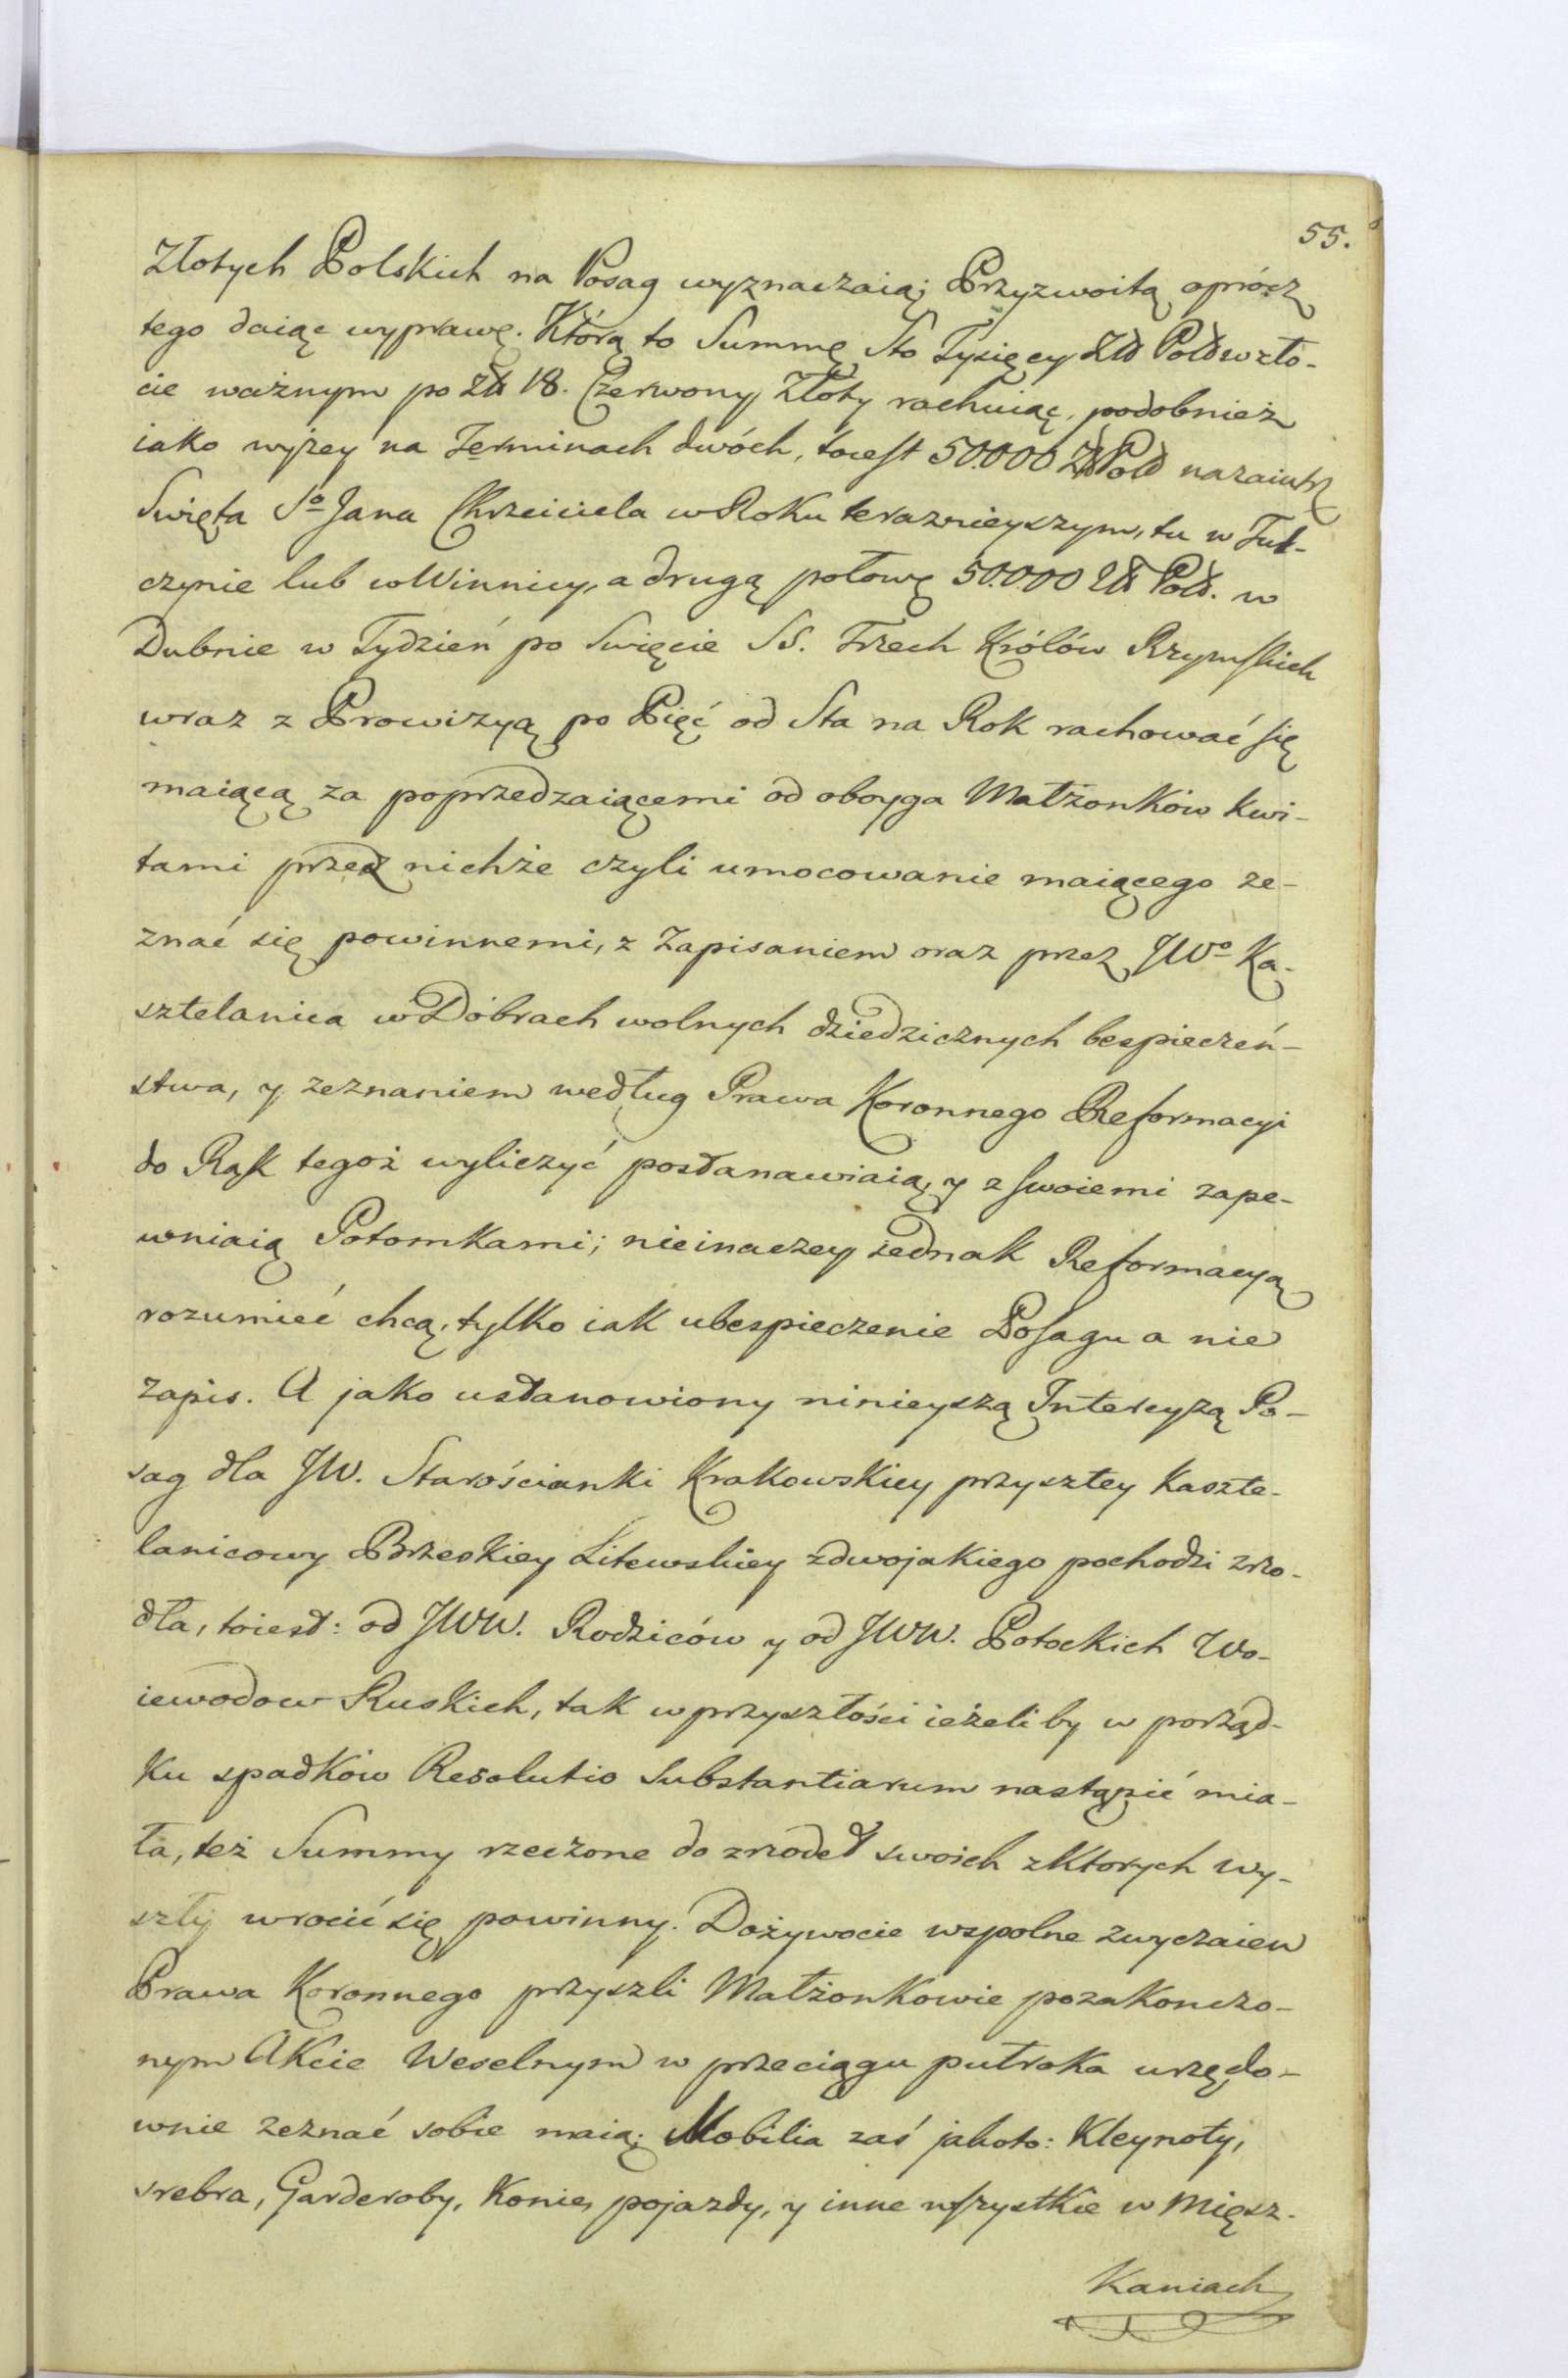 55.
Złotych Polskich na Posag wyznaczaią; Przyzwoitą oprócz
tego daiąc wyprawę. Którą to Summę Sto Tysięcy Złł Polł w zło-
cie ważnym po Złł 18. Czerwony Złoty rachuiąc, podobnież
iako wyżey na Terminach dwóch, toiest 50.000 Złł Polł nazaiutrz
Swięta So Jana Chrzciciela w Roku terazniejszym, tu w Tul-
czynie lub w Winnicy, a drugą połowę 50.000 Złł Polł. w
Dubnie w Tydzień po Swięcie SS. Trzech Królów Rzymskich
wraz z Prowizyą po Pięć od Sta na Rok rachować się
maiącą za poprzedzaiącemi od oboyga Małżonków kwi-
tami przez nichże czyli umocowanie maiącego ze-
znać się powinnemi, z Zapisaniem oraz przez JWo Ka-
sztelanica w Dobrach wolnych dziedzicznych bespieczeń-
stwa, y zeznaniem według Prawa Koronnego Reformacyi
do Rąk tegoż wyliczyć postanawiaią, y z swoiemi zape-
wniaią Potomkami; nieinaczey jednak Reformacyą
rozumieć chcą, tylko iak ubespieczenie Posagu a nie
zapis. A jako ustanowiony ninieyszą Intercyzą Po-
sag dla JW. Starościanki Krakowskiey przyszłey Kaszte-
lanicowy Brzeskiey Litewskiey zdwojakiego pochodzi zrzo-
dła, toiest: od JWW. Rodziców y od JWW. Potockich Wo-
iewodow Ruskich, tak w przyszłości ieżeliby w porząd-
ku spadków Resolutio Substantiarum nastąpić mia-
ła, też Summy rzeczone do zrzodeł swoich z ktorych wy-
szły wrocić się powinny. Dożywocie wspolne zwyczaiem
Prawa Koronnego przyszli Małżonkowie pozakonczo-
nym Akcie Weselnym w przeciągu pułroka urzędo-
wnie zeznać sobie maią; Mobilia zaś jakoto: Kleynoty,
srebra, Garderoby, Konie, pojazdy, y inne wszystkie w miesz-
kaniach